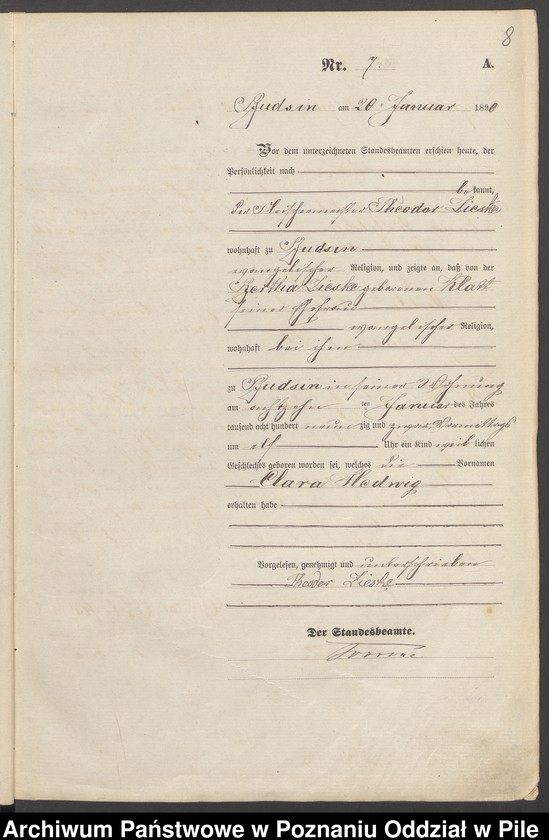 8
Nr. 7 A.
Budsin am 20. Januar 1890
Vor dem unterzeichneten Standesbeamten erschien heute, der
Persönlichkeit nach
bekannt,
der Fleischermeister Theodor Lieske
wohnhaft zu Budsin
evangelischer Religion, und zeigte an, daß von der
Bertha Lieske geborenen Klatt
seiner Ehefrau
evangelischer Religion,
wohnhaft bei ihm
zu Budsin in seiner Wohnung
am achtzehn ten Januar des Jahres
tausend acht hundert neun zig und zwar Vormittags
um elf Uhr ein Kind weib lichen
Geschlechts geboren worden sei, welches die Vornamen
Clara Hedwig
erhalten habe
Vorgelesen, genehmigt und unterschrieben
Theodor Lieske
Der Standesbeamte.
Archiwum Państwowe w Poznaniu Oddział w Pile